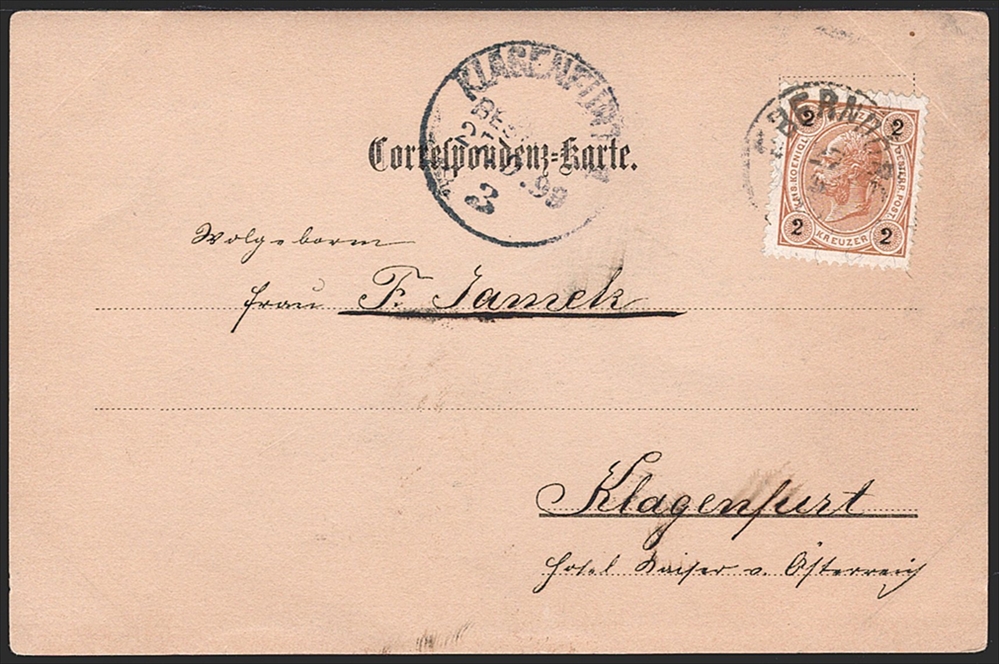 KLAGENFURT
BES
3
99
Correspondenz=Karte.
2 2
KAIS. KOENIGL. OESTERR. POST.
2 KREUZER 2
Wolgeborn
Frau F. Jamek
Klagenfurt
Hotel Kaiser v. Österreich